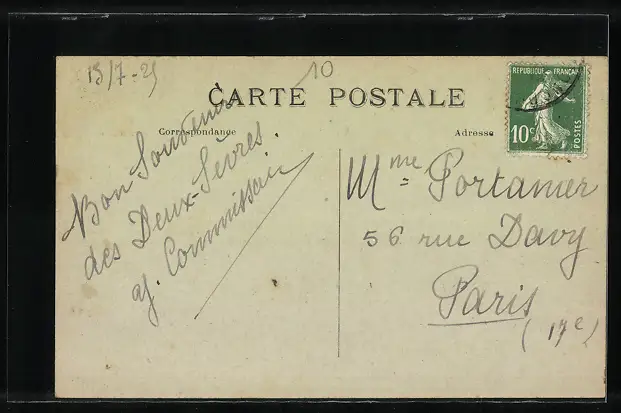 13/7-25
10
CARTE POSTALE
Correspondance
Adresse
REPUBLIQUE FRANÇAISE
10c
POSTES
Bon Souvenir
des Deux-Sèvres.
Mme Portanier
56 rue Davy
Paris
(17e)